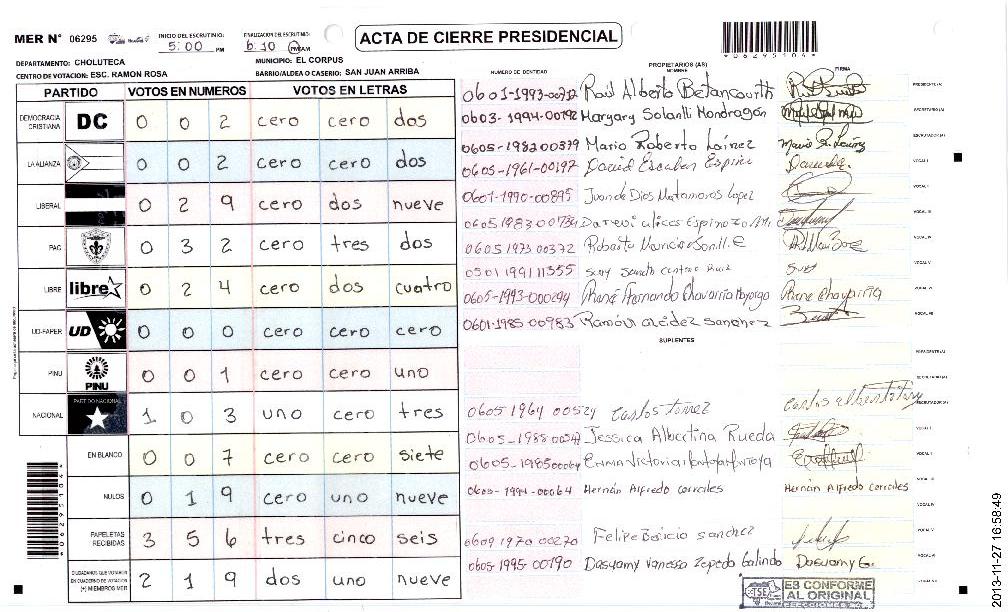 MER N° 06295 INICIO DEL ESCRUTINIO: 5:00 PM FINALIZACION DEL ESCRUTINIO: 6:10 PM/AM
ACTA DE CIERRE PRESIDENCIAL
*06295104*
DEPARTAMENTO: CHOLUTECA MUNICIPIO: EL CORPUS
CENTRO DE VOTACION: ESC. RAMON ROSA BARRIO/ALDEA O CASERIO: SAN JUAN ARRIBA
PARTIDO VOTOS EN NUMEROS VOTOS EN LETRAS
DEMOCRACIA CRISTIANA DC 0 0 2 cero cero dos
LA ALIANZA 0 0 2 cero cero dos
LIBERAL 0 2 9 cero dos nueve
PAC 0 3 2 cero tres dos
LIBRE libre 0 2 4 cero dos cuatro
UD-FAPER UD 0 0 0 cero cero cero
PINU PINU 0 0 1 cero cero uno
NACIONAL PARTIDO NACIONAL 1 0 3 uno cero tres
EN BLANCO 0 0 7 cero cero siete
NULOS 0 1 9 cero uno nueve
PAPELETAS RECIBIDAS 3 5 6 tres cinco seis
CIUDADANOS QUE VOTARON EN CUADERNO DE VOTACION (+) MIEMBROS MER 2 1 9 dos uno nueve
PROPIETARIOS (AS)
NUMERO DE IDENTIDAD NOMBRE FIRMA
0601-1993-00712 Raúl Alberto Betancourth PRESIDENTE (A)
0603-1994-00192 Margary Solanlli Mondragón SECRETARIO (A)
0605-1982 00379 Mario Roberto Laínez ESCRUTADOR (A)
0605-1961-00197 David Escobar Espino VOCAL I
0601-1990-00895 Juan de Dios Matamoros Lopez VOCAL II
0605 1983 00734 Espinoza VOCAL III
0605 1973 00372 Roberto VOCAL IV
0501 1991 11355 VOCAL V
0605-1993-000294 René Fernando Chavarria Mayorga VOCAL VI
0601-1985-00983 Ramón alcidez sanchez VOCAL VII
SUPLENTES
PRESIDENTE (A)
SECRETARIO (A)
0605 1964 00524 Carlos torrez ESCRUTADOR (A)
0605-1988 Jessica Albertina Rueda VOCAL I
0605-1985 00064 Emma Victoria VOCAL II
0605-1994-00064 Hernán Alfredo corrales Hernán Alfredo corrales VOCAL III
0609 1970 00270 Felipe sanchez VOCAL V
0605-1995-00190 Dasuamy Vanessa Zepeda Galindo Dasuamy G. VOCAL VI
TSE
ES CONFORME AL ORIGINAL
ELECCIONES
*06295104*
2013-11-27 16:58:49